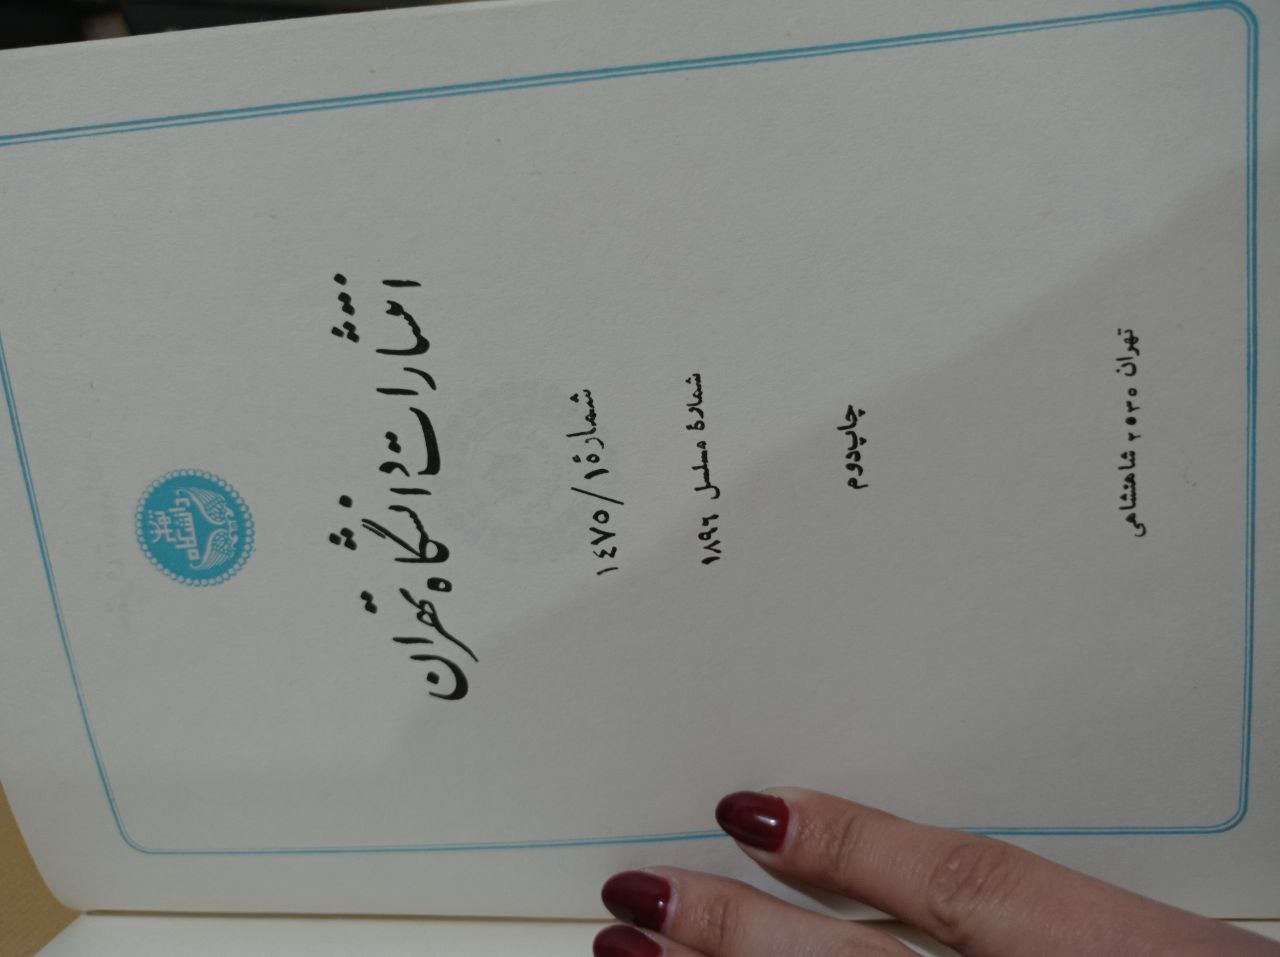 دانشگاه تهران
انتشارات دانشگاه تهران
شمارهٔ ۱۴۷۵/۱
شمارهٔ مسلسل ۱۸۹۶
چاپ دوم
تهران ۲۵۳۵ شاهنشاهی